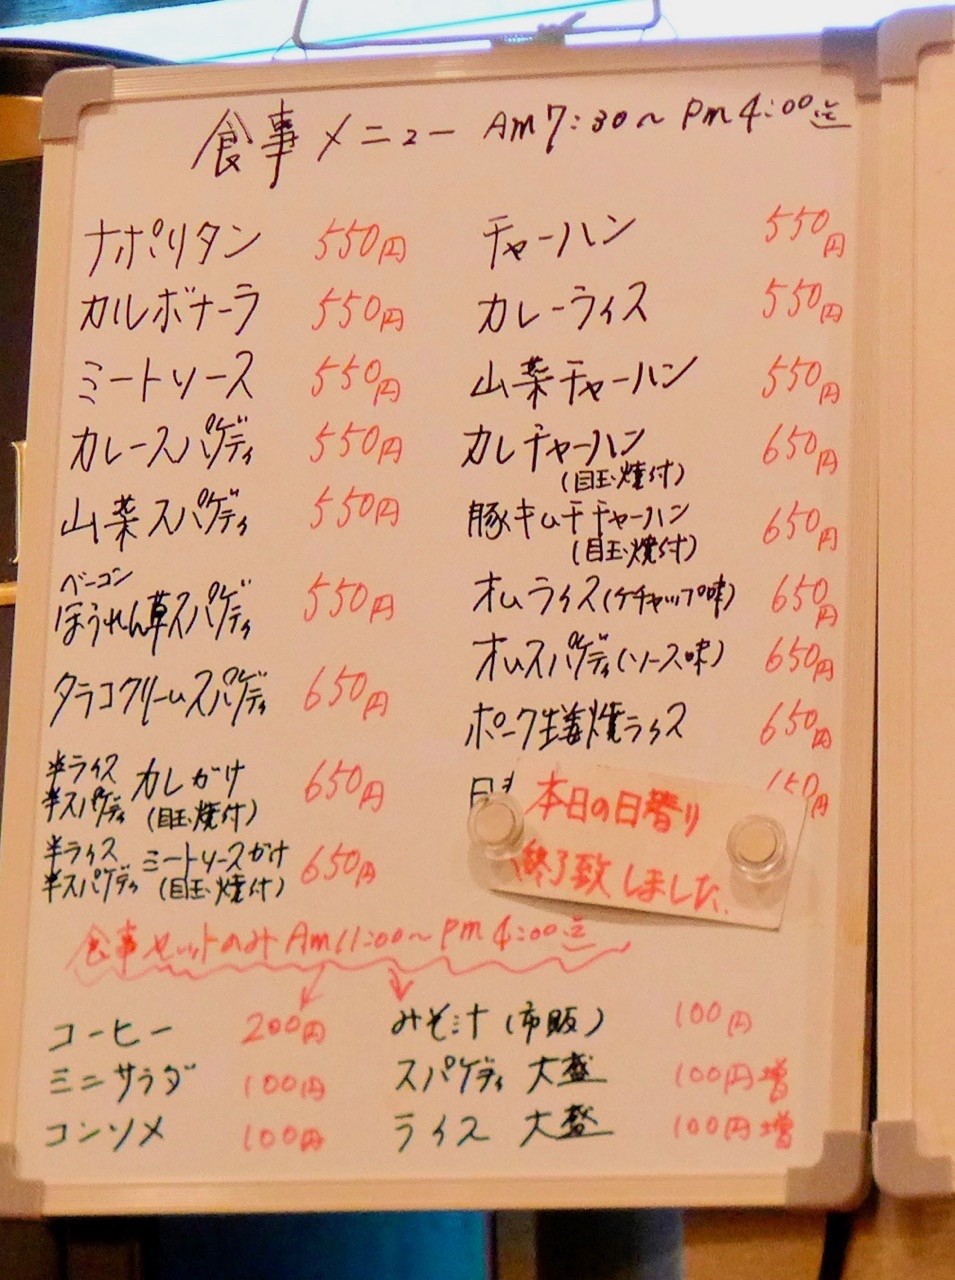 食事メニュー Am7:30〜Pm4:00迄
ナポリタン 550円
カルボナーラ 550円
ミートソース 550円
カレースパゲティ 550円
山菜スパゲティ 550円
ベーコン
ほうれん草スパゲティ 550円
タラコクリームスパゲティ 650円
半ライス
半スパゲティ カレがけ 650円
(目玉焼付)
半ライス
半スパゲティ ミートソースがけ 650円
(目玉焼付)
チャーハン 550円
カレーライス 550円
山菜チャーハン 550円
カレチャーハン 650円
(目玉焼付)
豚キムチチャーハン 650円
(目玉焼付)
オムライス(ケチャップ味) 650円
オムスパゲティ(ソース味) 650円
ポーク生姜焼ライス 650円
日
本日の日替り
終了致しました.
食事セットのみ Am11:00〜Pm4:00迄
コーヒー 200円
ミニサラダ 100円
コンソメ 100円
みそ汁(市販) 100円
スパゲティ 大盛 100円増
ライス 大盛 100円増